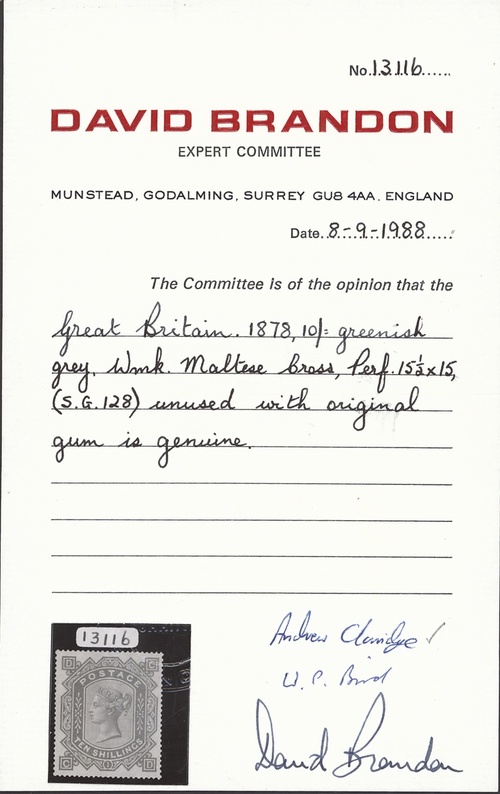 No.13116......
DAVID BRANDON
EXPERT COMMITTEE
MUNSTEAD, GODALMING, SURREY GU8 4AA. ENGLAND
Date..8-9-1988.....
The Committee is of the opinion that the
Great Britain. 1878, 10/= greenish
grey. Wmk. Maltese Cross, Perf. 15½x15,
(S.G.128) unused with original
gum is genuine.
Andrew Claridge
W.P. Bird
David Brandon
13116
D C
POSTAGE
TEN SHILLINGS
C D